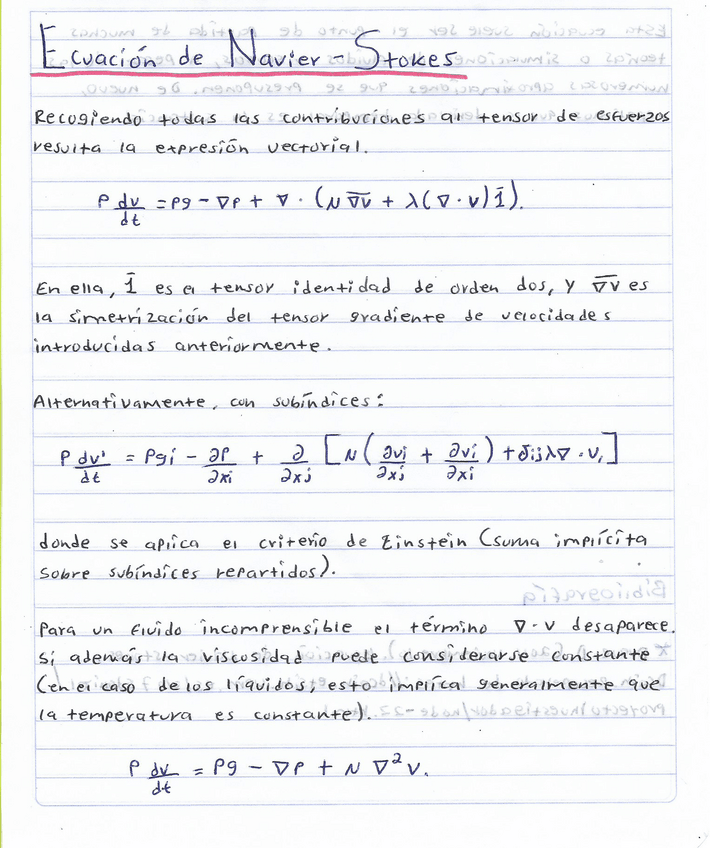 Ecuación de Navier-Stokes
Recogiendo todas las contribuciones al tensor de esfuerzos
resulta la expresión vectorial.
ρ dv/dt = ρg - ∇P + ∇ · (N ∇̅v̅ + λ(∇ · v) 1̄).
En ella, 1̄ es el tensor identidad de orden dos, y ∇̅v̅ es
la simetrización del tensor gradiente de velocidades
introducidas anteriormente.
Alternativamente, con subíndices:
ρ dv'/dt = ρgi - ∂P/∂xi + ∂/∂xj [N(∂vi/∂xj + ∂vi/∂xi) + δijλ∇ · v,]
donde se aplica el criterio de Einstein (suma implícita
sobre subíndices repartidos).
Para un fluido incomprensible el término ∇ · v desaparece.
Si además la viscosidad puede considerarse constante
(en el caso de los líquidos, esto implíca generalmente que
la temperatura es constante).
ρ dv/dt = ρg - ∇P + N ∇²v.